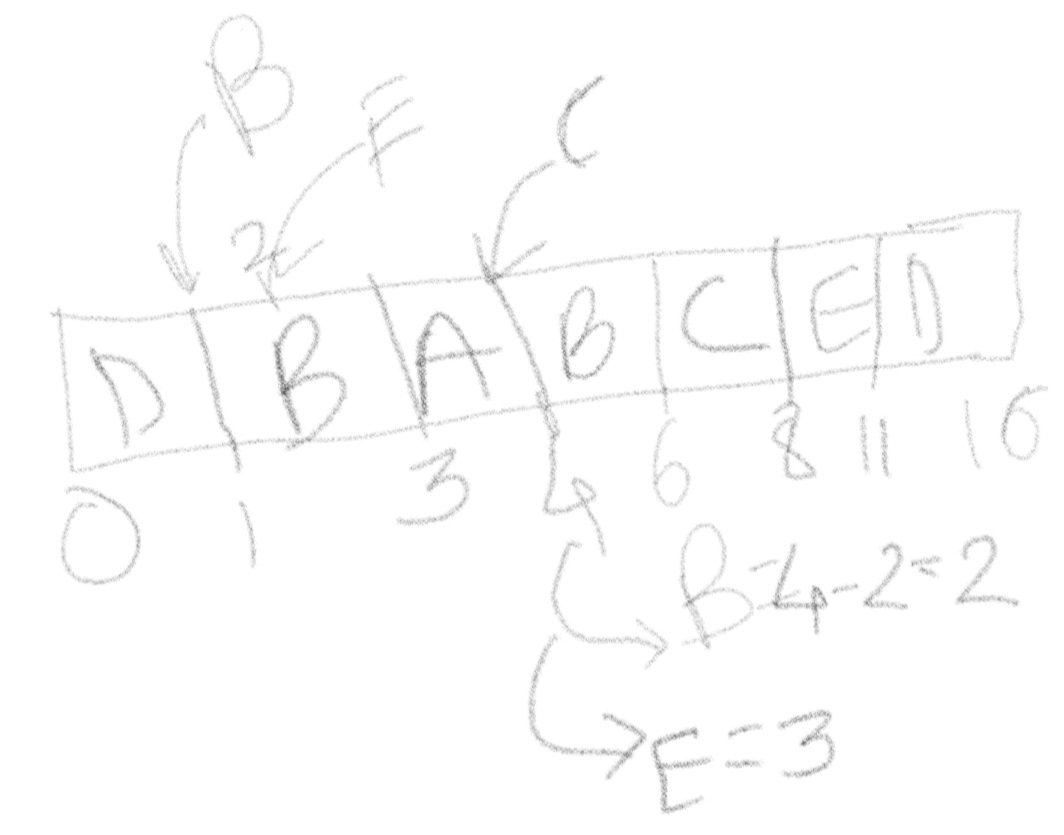 B E C
2
D B A B C E D
0 1 3 4 6 8 11 16
B = 4 - 2 = 2
E = 3